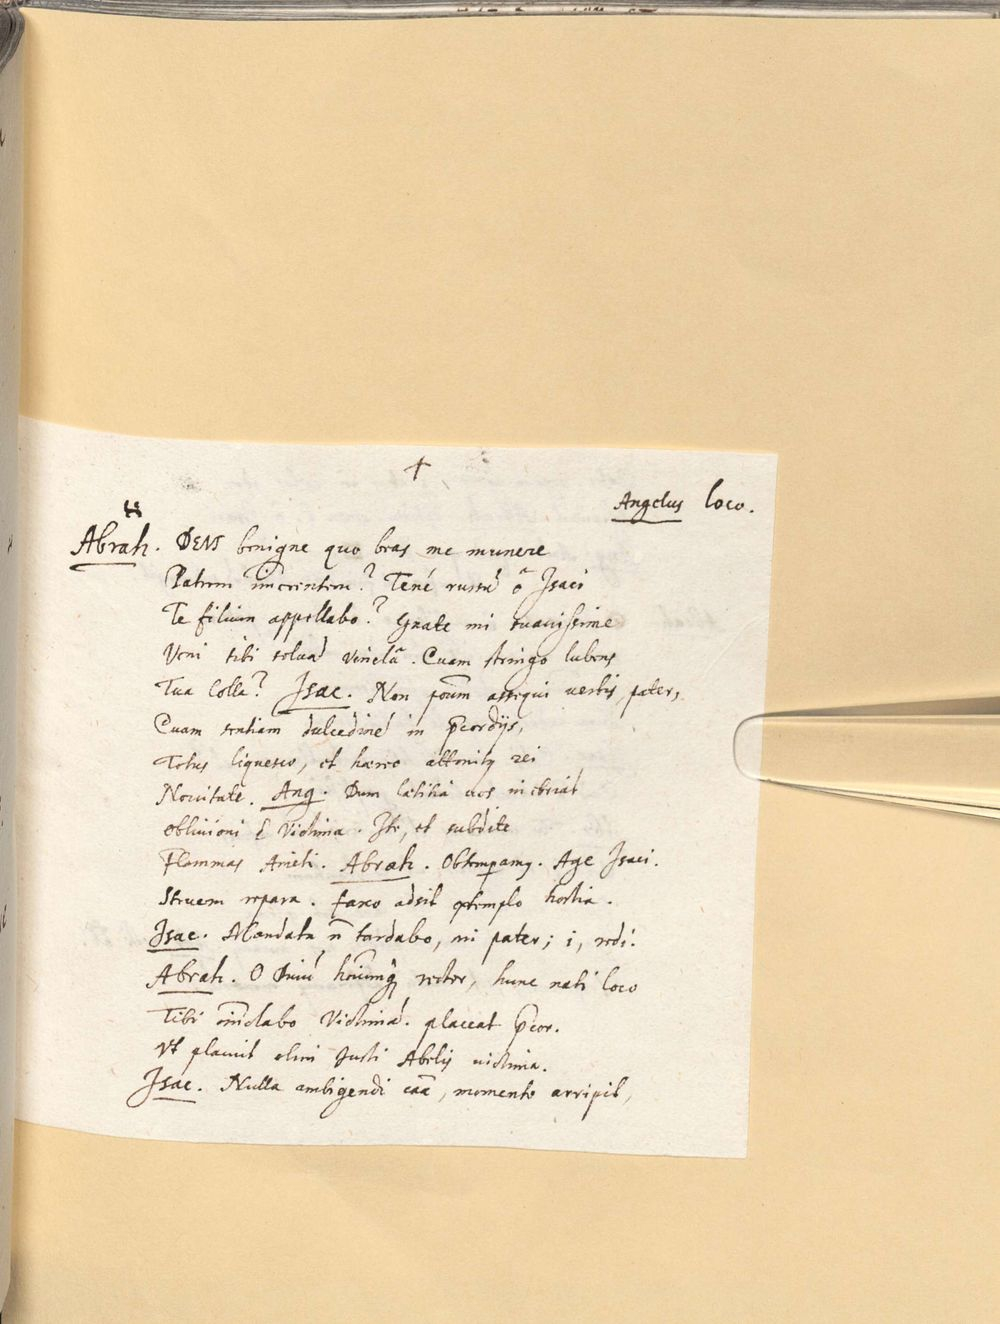 †
Angelus loco.
Abrah. DEUS benigne quo beas me munere
Patrem immerentem? Tené rursũ ô Isaci
Te filium appellabo? Gnate mi suavissime
Veni tibi solvã vincla. Cuam stringo lubens
Tua colla? Isac. Non possum assequi verbis, pater,
Cuam sentiam dulcedinẽ in p̃cordijs,
Totus liquesco, et hæreo attonitꝯ rei
Novitate. Ang. Dum lætitia vos inebriat
oblivioni ẽ victima. Ite, et subdite
Flammas Arieti. Abrah. Obtemperamꝯ. Age Isaci.
Struem repara. faxo adsit extemplo hostia.
Isac. Mandata ñ tardabo, mi pater; i, redi.
Abrah. O Divũ hominumq̃ rector, hunc nati loco
Tibi mactabo victimã. placeat p̃cor.
Ut placuit olim Justi Abelis victima.
Isac. Nulla ambigendi cãa, momento arripit,